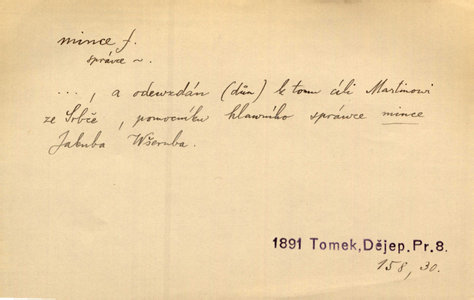 mince f.
správce ~.
..., a odewzdán (dům) k tomu cíli Martinowi
ze Srbče, pomocníku hlawního správce mince
Jakuba Wšeruba.
1891 Tomek, Dějep. Pr. 8.
158, 30.